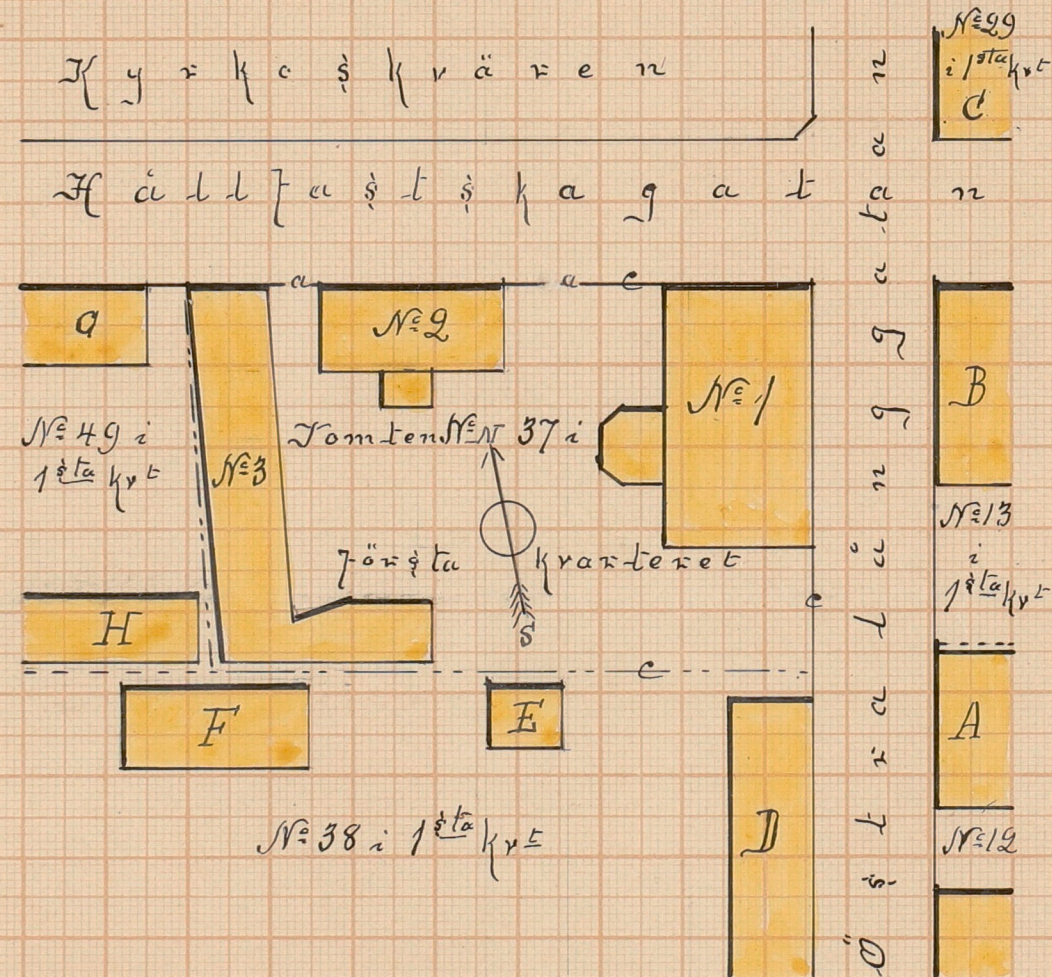 Kyrkoskvären
Hållfastskagatan
Östralånggatan
No 29
i 1sta kvt
C
a
a
c
G
No 2
No 1
B
No 49 i
1sta kvt
No 3
Tomten No 37 i
N
första kvarteret
S
No 13
i
1sta kvt
c
H
c
F
E
D
A
No 38 i 1sta kvt
No 12